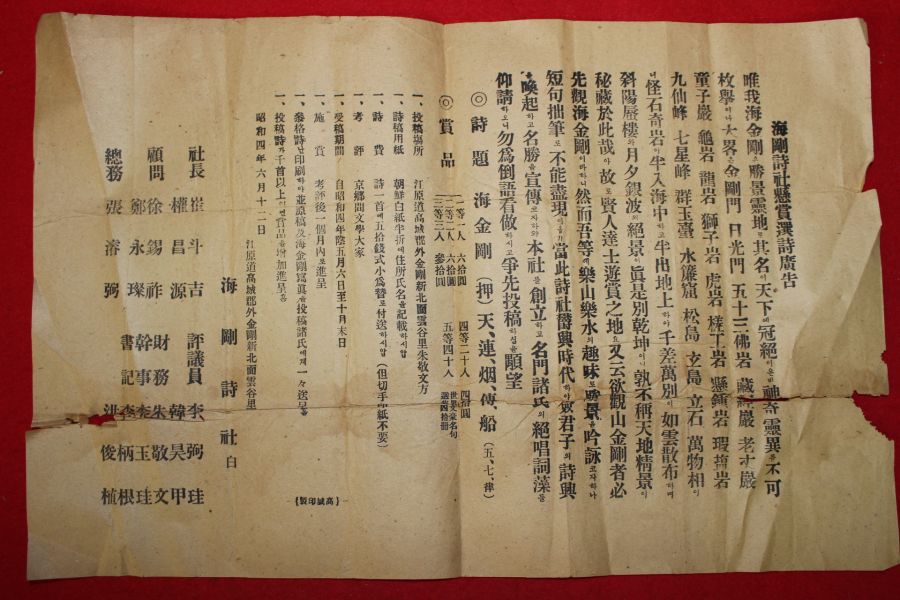 海剛詩社懸賞選詩廣告
唯我海金剛은勝景靈地로其名이天下에冠絶이온바神奇靈異를不可
枚擧이나大畧은金剛門 日光門 五十三佛岩 藏經巖 老丈巖
童子巖 龜岩 龍岩 獅子岩 虎岩 槎工岩 懸鍾岩
九仙峰 七星峰 群玉臺 水簾窟 松島 玄島 立石 萬物相이
怪石奇岩이半入海中하고半出地上하야千差萬別이如雲散布하며
斜陽蜃樓와月夕銀波의絶景이眞是別乾坤이니孰不稱天地精景이
秘藏於此哉아故로賢人達士遊賞之地요又云欲觀山金剛者必
先觀海金剛이라하니然而吾等에樂山樂水의趣味로勝景을吟詠코자하나
短句拙筆로不能盡現이올기當此詩社蔚興時代하야衆君子의詩興
을喚起하고名勝을宣傳코자와本社를創立하고名門諸氏의絶唱詞藻를
仰請하오니勿爲倒語看做하시고爭先投稿하심을願望
◎詩題 海金剛（押）天、連、烟、傳、船（五、七、律）
◎賞品
一等一人 六拾圓
二等二人 六拾圓
三等三人 參拾圓
四等二十人 四拾圓
五等四十人 世界文豪名句選 四拾冊
一、投稿場所 江原道高城郡外金剛新北面雲谷里朱敬文方
一、詩稿用紙 朝鮮白紙半折에住所氏名을記載하시압
一、詩費 詩一首에五拾錢式小爲替로付送하시압（但切手印紙不要）
一、考評 京鄕間文學大家
一、受稿期間 自昭和四年陰五月六日至十月末日
一、施賞 考評後一個月內로進呈
一、參格詩난印刷하야並原稿及海金剛寫眞을投稿諸氏에게一々送呈홈
一、投稿詩가千首以上이면賞品을增加進呈홈
昭和四年六月十二日
江原道高城郡外金剛新北面雲谷里
海剛詩社白
社長 崔斗吉
顧問 權昌源
徐錫祚
鄭永璨
總務 張濬弼
評議員 李弼珪
韓昊甲
財務 朱敬文
幹事 李玉珪
書記 李柄根
洪俊植
｛高城印製｝